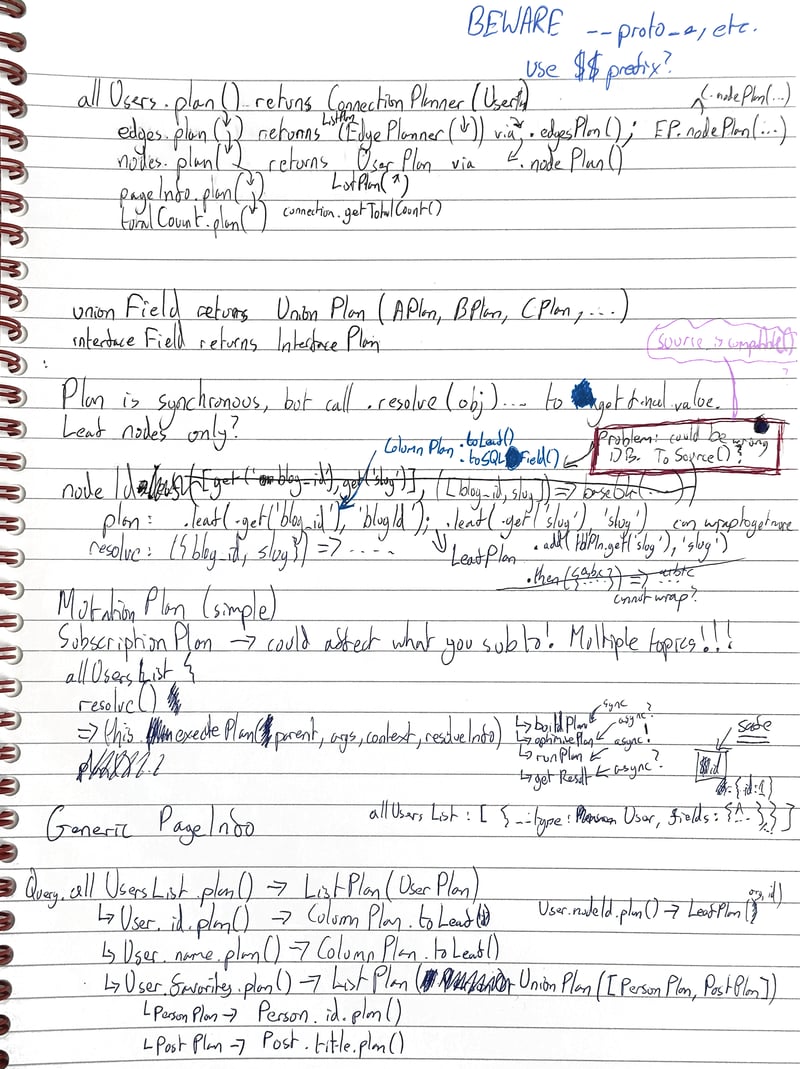 BEWARE --proto--, etc.
use $$ prefix?
allUsers.plan() returns ConnectionPlanner(User)
(.nodePlan(...)
edges.plan(↓) returns ListPlan(EdgePlanner(↓)) via .edgesPlan(); EP.nodePlan(...)
nodes.plan(↓) returns UserPlan via .nodePlan()
pageInfo.plan(↓) ListPlan(^)
totalCount.plan(↓) connection.getTotalCount()
union Field returns UnionPlan (APlan, BPlan, CPlan, ...)
interface Field returns Interface Plan
Source is compatible()
?
Plan is synchronous, but call .resolve(obj)... to get final value.
Leaf nodes only?
ColumnPlan .toLeaf()
.toSQL Field()
Problem: could be wrong
DB. ToSource()?
nodeId [get('blog_id'), get('slug')], ([blog_id, slug]) => base64(...)
plan: .leaf(.get('blog_id'), 'blogId'); .leaf(.get('slug') 'slug') can wrap to get more
resolve: ({blog_id, slug}) => ..... LeafPlan .add(.get('slug'), 'slug')
.then({abc?}) =>
cannot wrap?
Mutation Plan (simple)
Subscription Plan → could affect what you sub to! Multiple topics!!!
allUsersList {
resolve()
=> this.executePlan(parent, args, context, resolveInfo)
↳ buildPlan ← sync
↳ optimisePlan ← async?
↳ runPlan ← async!
↳ getResult ← async?
safe
$$id
{id:1}
Generic PageInfo
allUsersList: [ {__type: User, fields: {^...}} ]
Query.allUsersList.plan() → ListPlan(UserPlan)
↳ User.id.plan() → ColumnPlan.toLeaf()
User.nodeId.plan() → LeafPlan(org, id)
↳ User.name.plan() → ColumnPlan.toLeaf()
↳ User.favorites.plan() → ListPlan( UnionPlan([PersonPlan, PostPlan])
↳ PersonPlan → Person.id.plan()
↳ PostPlan → Post.title.plan()